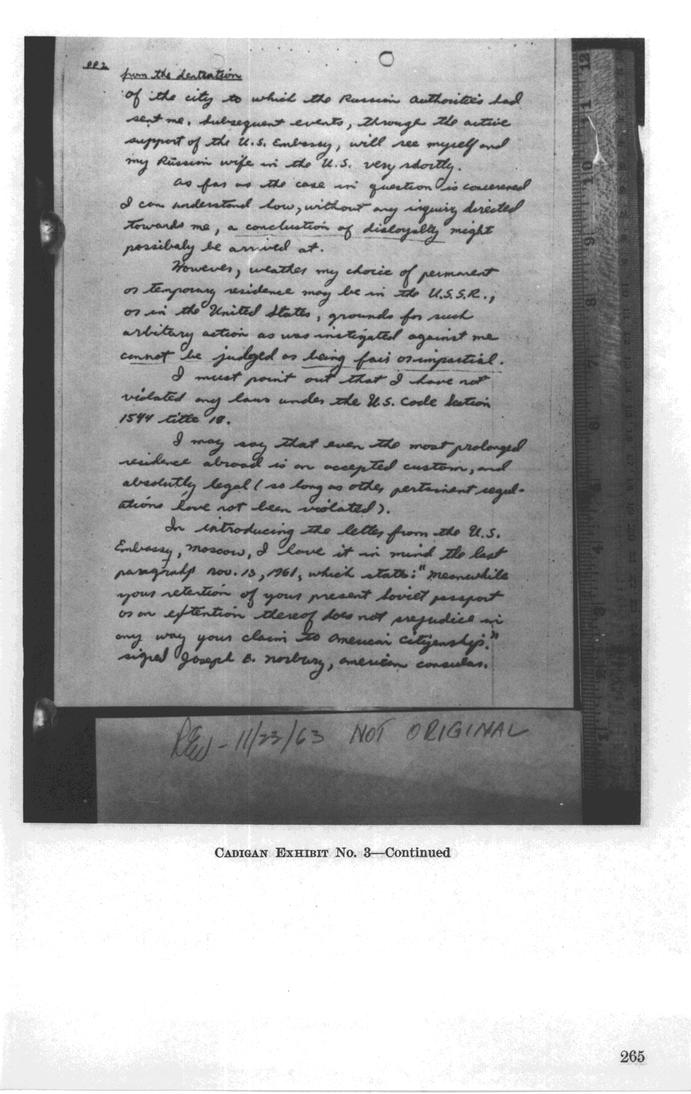 PP2
from the destination
of the city to which the Russian authorities had
sent me. Subsequent events, through the active
support of the U.S. Embassy, will see myself and
my Russian wife in the U.S. very shortly.
As far as the case in question is concerened
I can understand how, without any inquiry directed
towards me, a concluction of disloyalty might
possibaly be arrived at.
However, weather my choice of permanent
or temporary residence may be in the U.S.S.R.,
or in the United States, grounds for such
arbitary action as was instigated against me
cannot be judged as being fair or impartial.
I must point out that I have not
violated any laws under the U.S. Code Section
1544 title 18.
I may say that even the most prolonged
residence abroad is an accepted custom, and
absolutly legal (so long as other pertainent regul-
ations have not been violated).
In introducing the letter from the U.S.
Embassy, Moscow, I have it in mind the last
paragraph Nov. 13, 1961, which stats: "meanwhile
your retention of your present Soviet passport
or an extention thereof does not prejudice in
any way your claim to American citizenship."
signed Joseph B. Norbury, American consular.
- 11/23/63 NOT ORIGINAL
12
11
10
9
8
CADIGAN EXHIBIT No. 3—Continued
265